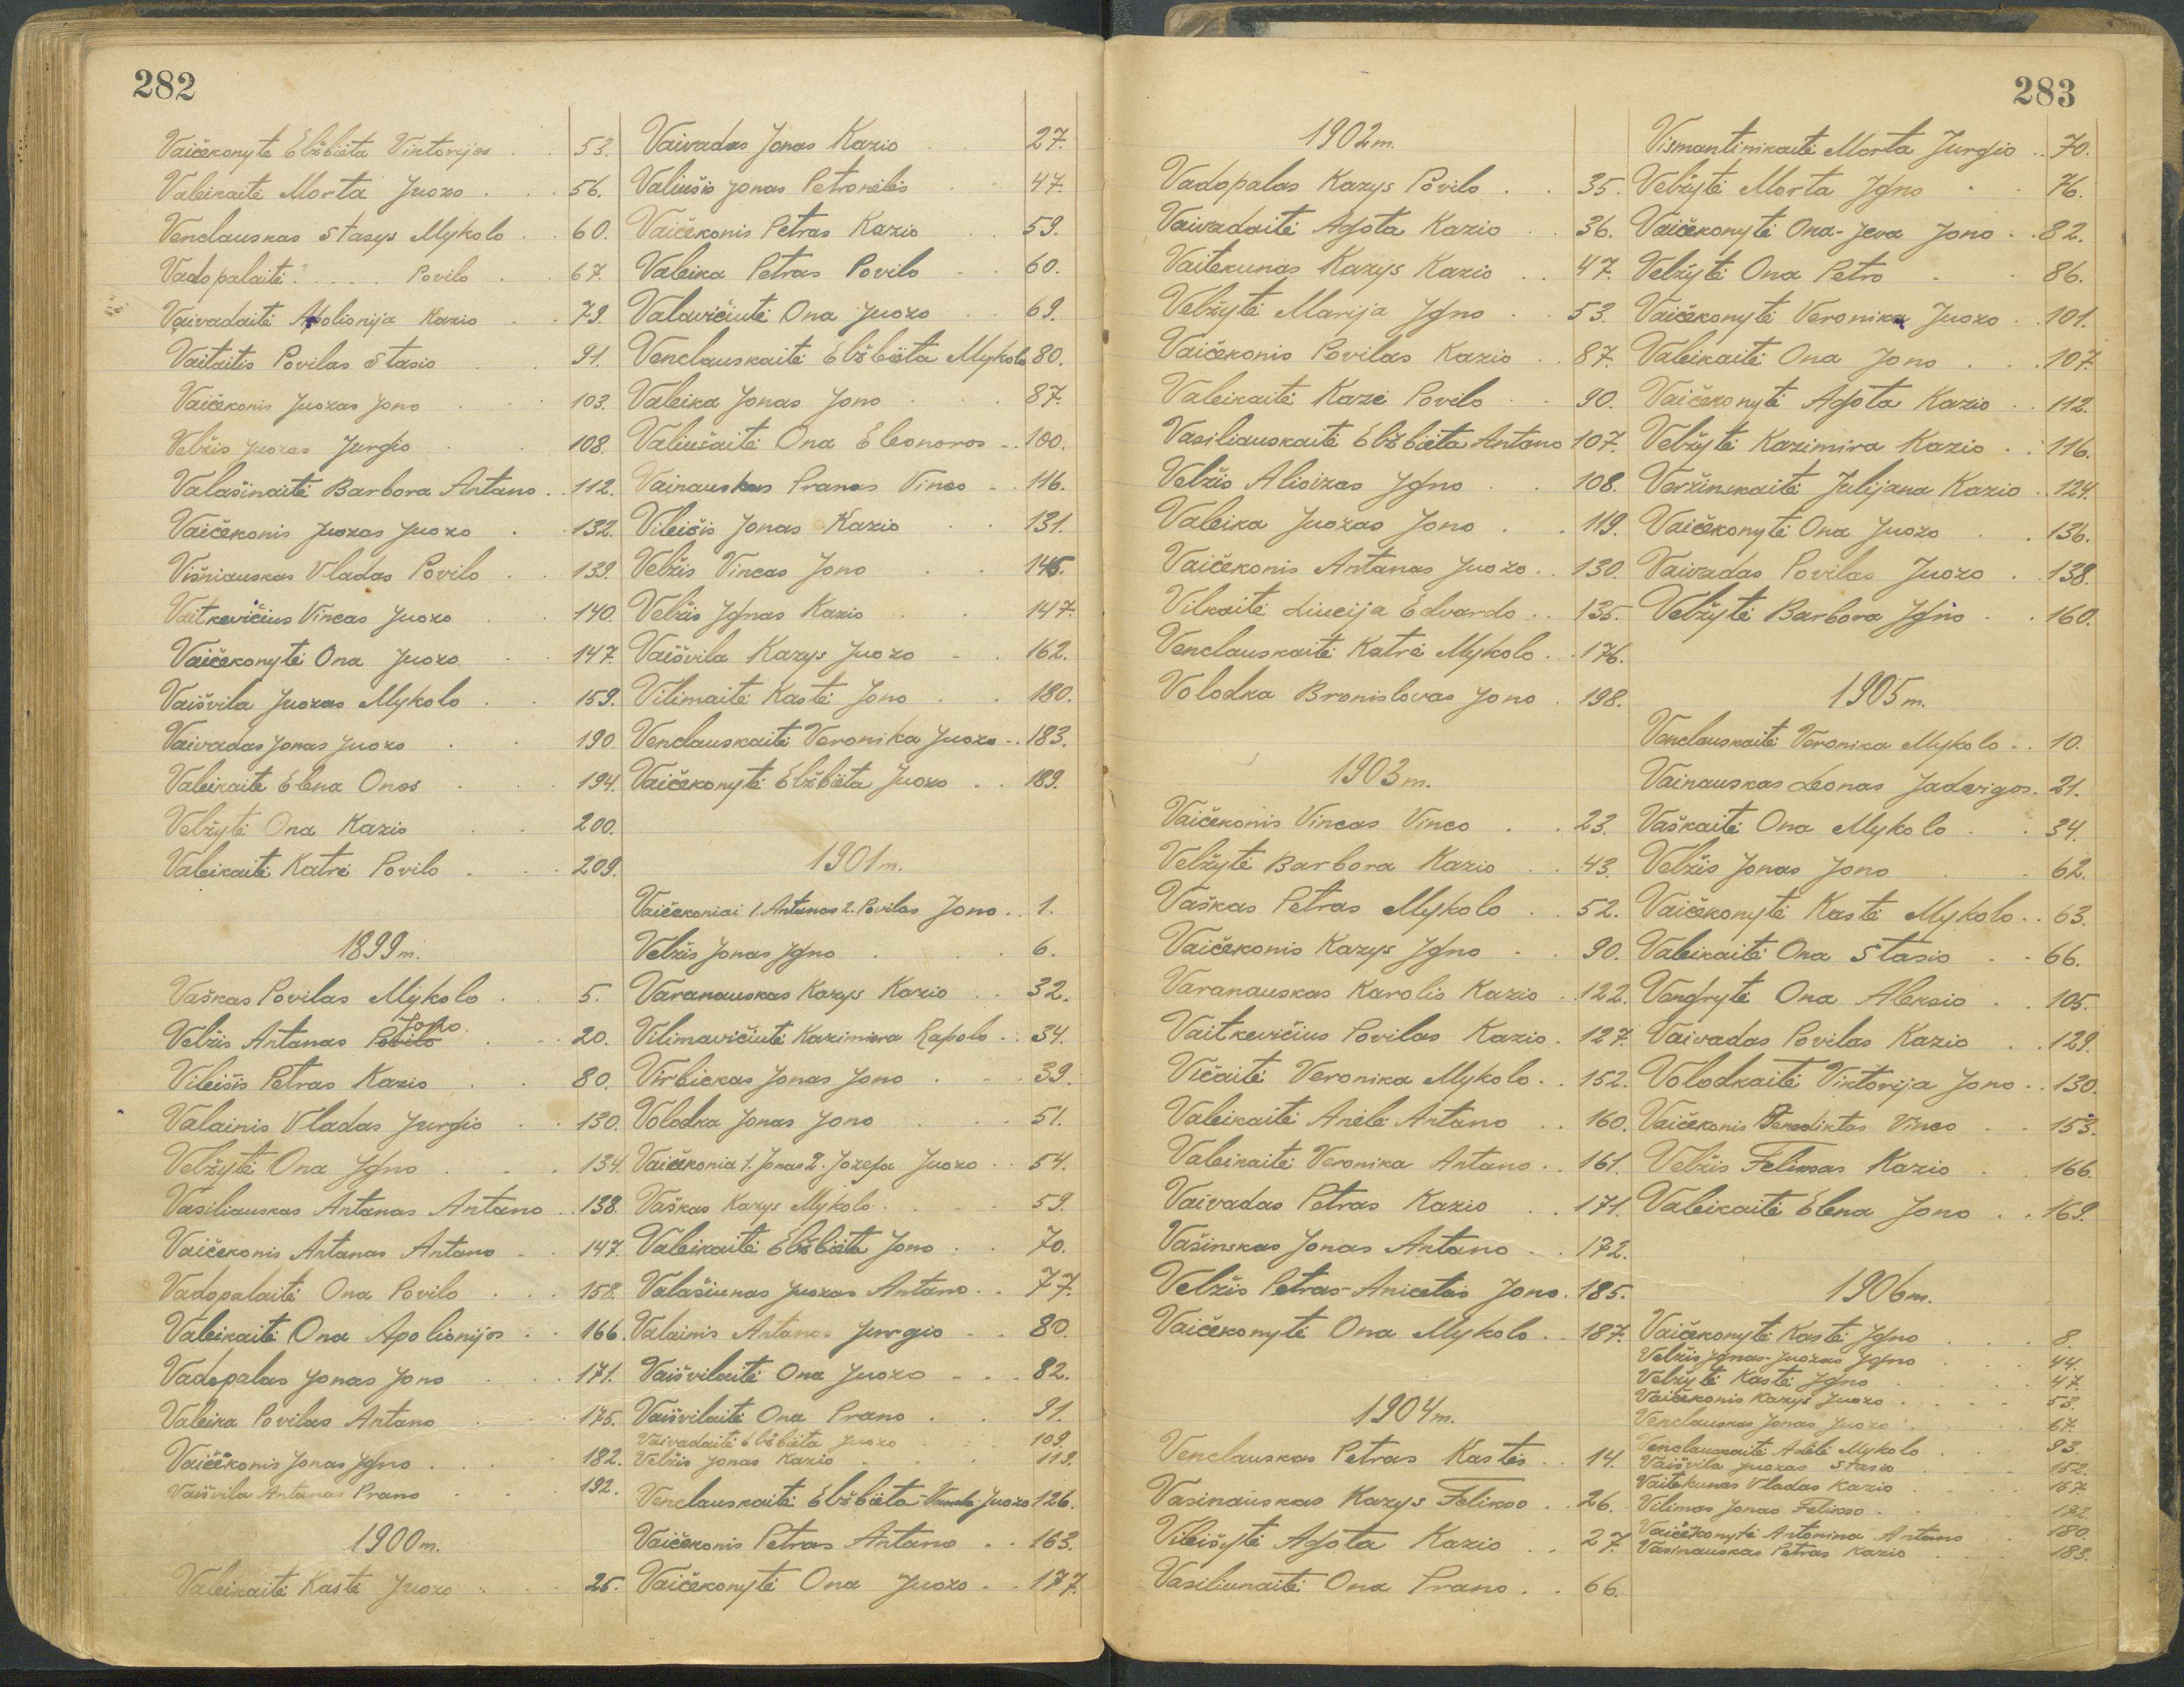 282
Vaičekonytė Elžbieta Viktorijos . . 53.
Valeikaitė Morta Juozo . . . 56.
Venclauskas Stasys Mykolo . . 60.
Vadopalaitė . . . . Povilo . . 67.
Vaivadaitė Apolionija Kazio . . 79.
Vaitaitis Povilas Stasio . . 91.
Vaičekonis Juozas Jono . . . 103.
Velžis Juozas Jurgio . . 108.
Valašinaitė Barbora Antano . . 112.
Vaičekonis Juozas Juozo . . 132.
Višniauskas Vladas Povilo . . 139.
Vaitkevičius Vincas Juozo . . 140.
Vaičekonytė Ona Juozo . . 147.
Vaišvila Juozas Mykolo . . 159.
Vaivadas Jonas Juozo . . 190.
Valeikaitė Elena Onos . . . 194.
Velžytė Ona Kazio . . 200.
Valeikaitė Katrė Povilo . . . 209.
1899 m.
Vaškas Povilas Mykolo . . 5.
Jono.
Velžis Antanas Povilo . . . 20.
Vileišis Petras Kazio . . 80.
Valainis Vladas Jurgio . . 130.
Velžytė Ona Igno . . . 134.
Vasiliauskas Antanas Antano . . 138.
Vaičekonis Antanas Antano . . 147.
Vadopalaitė Ona Povilo . . . 158.
Valeikaitė Ona Apolionijos . . 166.
Vadopalas Jonas Jono . . . 171.
Valeika Povilas Antano . . . 175.
Vaičekonis Jonas Igno . . . . 182.
Vaišvila Antanas Prano . . . 192.
1900 m.
Valeikaitė Kastė Juozo . . . 25.
Vaivadas Jonas Kazio . 27.
Valiušis Jonas Petronėlės . . 47.
Vaičekonis Petras Kazio . . 59.
Valeika Petras Povilo . . 60.
Valavičiutė Ona Juozo . . 69.
Venclauskaitė Elžbieta Mykolo 80.
Valeika Jonas Jono . . . 87.
Valiušaitė Ona Eleonoros . . 100.
Vainauskas Pranas Vinco . . 116.
Vileišis Jonas Kazio . . 131.
Velžis Vincas Jono . . 145.
Velžis Ignas Kazio . . 147.
Vaišvila Kazys Juozo . . 162.
Vilimaitė Kastė Jono . . 180.
Venclauskaitė Veronika Juozo . . 183.
Vaičekonytė Elžbieta Juozo . . 189.
1901 m.
Vaičekoniai 1. Antanas 2. Povilas Jono . . 1.
Velžis Jonas Igno . . . 6.
Varanauskas Kazys Kazio . . 32.
Vilimavičiutė Kazimiera Rapolo . . 34.
Virbickas Jonas Jono . . . 39.
Volodka Jonas Jono . . . 51.
Vaičekonia 1. Jonas 2. Jozefa Juozo . . 54.
Vaškas Kazys Mykolo . . . . 59.
Valeikaitė Elžbieta Jono . . 70.
Valašiunas Juozas Antano . . 77.
Valainis Antanas Jurgio . . 80.
Vaišvilaitė Ona Juozo . . . 82.
Vaišvilaitė Ona Prano . . 91.
Vaivadaitė Elžbieta Juozo . . 109.
Velžis Jonas Kazio . . . . 119.
Venclauskaitė Elžbieta- Juozo 126.
Vaičekonis Petras Antano . . 163.
Vaičekonytė Ona Juozo . . 177.
283
1902 m.
Vadopalas Kazys Povilo . . 35.
Vaivadaitė Agota Kazio . 36.
Vaitekunas Kazys Kazio . . 47.
Velžytė Marija Igno . . 53.
Vaičekonis Povilas Kazio . . 87.
Valeikaitė Kazė Povilo . . 90.
Vasiliauskaitė Elžbieta Antano 107.
Velžis Alioizas Igno . . 108.
Valeika Juozas Jono . . 119.
Vaičekonis Antanas Juozo . . 130.
Vilkaitė Liucija Edvardo . . 135.
Venclauskaitė Katrė Mykolo . . . 176.
Volodka Bronislovas Jono . 198.
1903 m.
Vaičekonis Vincas Vinco . . 23.
Velžytė Barbora Kazio . . 43.
Vaškas Petras Mykolo . . 52.
Vaičekonis Kazys Igno . . 90.
Varanauskas Karolis Kazio . 122.
Vaitkevičius Povilas Kazio . 127.
Vičaitė Veronika Mykolo . . 152.
Valeikaitė Anėlė Antano . . 160.
Valeikaitė Veronika Antano . . 161.
Vaivadas Petras Kazio . . 171.
Vašinskas Jonas Antano . . 172.
Velžis Petras-Anicetas Jono . 185.
Vaičekonytė Ona Mykolo . . 187.
1904 m.
Venclauskas Petras Kastės . . 14.
Vasinauskas Kazys Felikso . . 26.
Vileišytė Agota Kazio . . 27.
Vasiliunaitė Ona Prano . . 66.
Vismantinikaitė Morta Jurgio . . 70.
Velžytė Morta Igno . . 76.
Vaičekonytė Ona-Jeva Jono . . 82.
Velžytė Ona Petro . . 86.
Vaičekonytė Veronika Juozo . . 101.
Valeikaitė Ona Jono . . . 107.
Vaičekonytė Agota Kazio . . 112.
Velžytė Kazimira Kazio . . 116.
Veržinskaitė Julijana Kazio . 124.
Vaičekonytė Ona Juozo . . 136.
Vaivadas Povilas Juozo . . 138.
Velžytė Barbora Igno . . 160.
1905 m.
Venclauskaitė Veronika Mykolo . . 10.
Vainauskas Leonas Jadvigos . 21.
Vaškaitė Ona Mykolo . . 34.
Velžis Jonas Jono . . 62.
Vaičekonytė Kastė Mykolo . . 63.
Valeikaitė Ona Stasio . . 66.
Vengrytė Ona Aleksio . . 105.
Vaivadas Povilas Kazio . . 129.
Volodkaitė Viktorija Jono . . 130.
Vaičekonis Benediktas Vinco . . 153.
Velžis Feliksas Kazio . . 166.
Valeikaitė Elena Jono . . 169.
1906 m.
Vaičekonytė Kastė Igno . . . 8.
Velžis Ignas-Juozas Igno . . . 44.
Velžytė Kastė Igno . . . . 47.
Vaičekonis Kazys Juozo . . . . 53.
Venclauskas Jonas Juozo . . . 67.
Venclauskaitė Adelė Mykolo . . 93.
Vaišvila Juozas Stasio . . . 152.
Vaitekunas Vladas Kazio . . . 157.
Vilimas Jonas Felikso . . . 172.
Vaičekonytė Antonina Antano . . 180.
Vasinauskas Petras Kazio . . . 183.